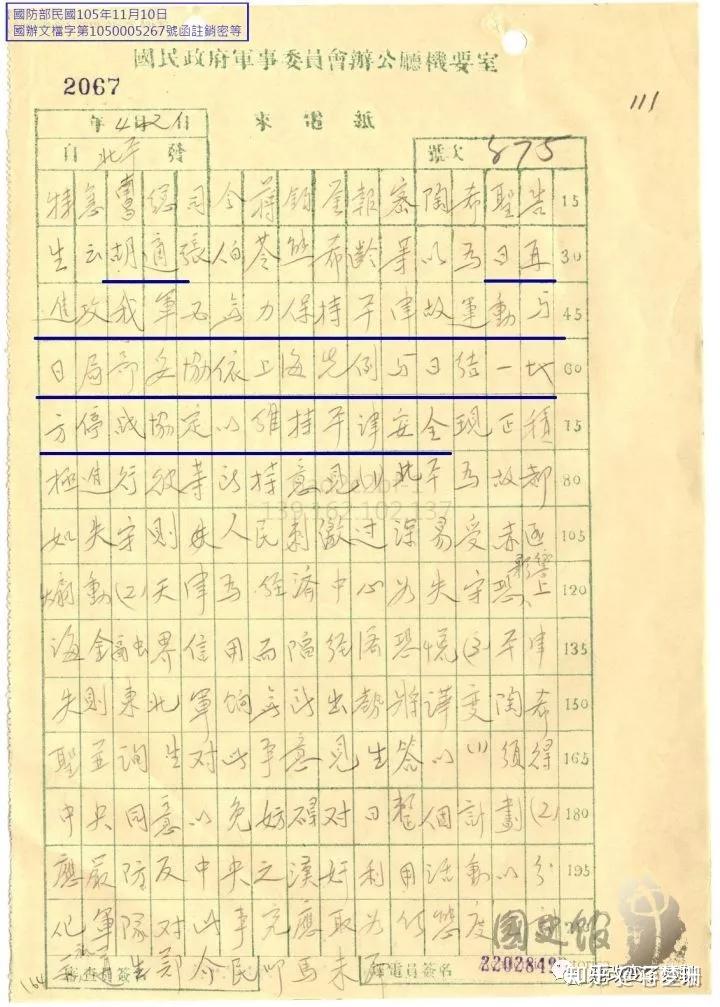 國防部民國105年11月10日
國辦文檔字第1050005267號函註銷密等
國民政府軍事委員會辦公廳機要室
2067
111
年4月2日
來電紙
自北平發
號次 875
特急曹總司令蔣鈞鑒報密陶希聖告 15
生云胡適張伯苓熊希齡等以為日再 30
進攻我軍不無力保持平津故運動與 45
日局部妥協依上海先例與日結一地 60
方停战協定以維持平津安全現正積 75
極進行彼等所持意見(1)北平為故都 80
如失守則與人民刺激过深易受赤匪 105
煽動(2)天津為經濟中心如失守恐影響上 120
海金融界信用而陷經濟恐慌(3)平津 135
失則東北軍餉無所出勢將譁变陶希 150
聖並詢生对此事意見生答以(1)須得 165
中央同意以免妨碍对日整個計劃(2) 180
應嚴防反中央之漢奸利用活動以分 195
化軍隊对此事究應取如何態度
生鄭介民叩馬未
電員簽名
國史館
2202849
164